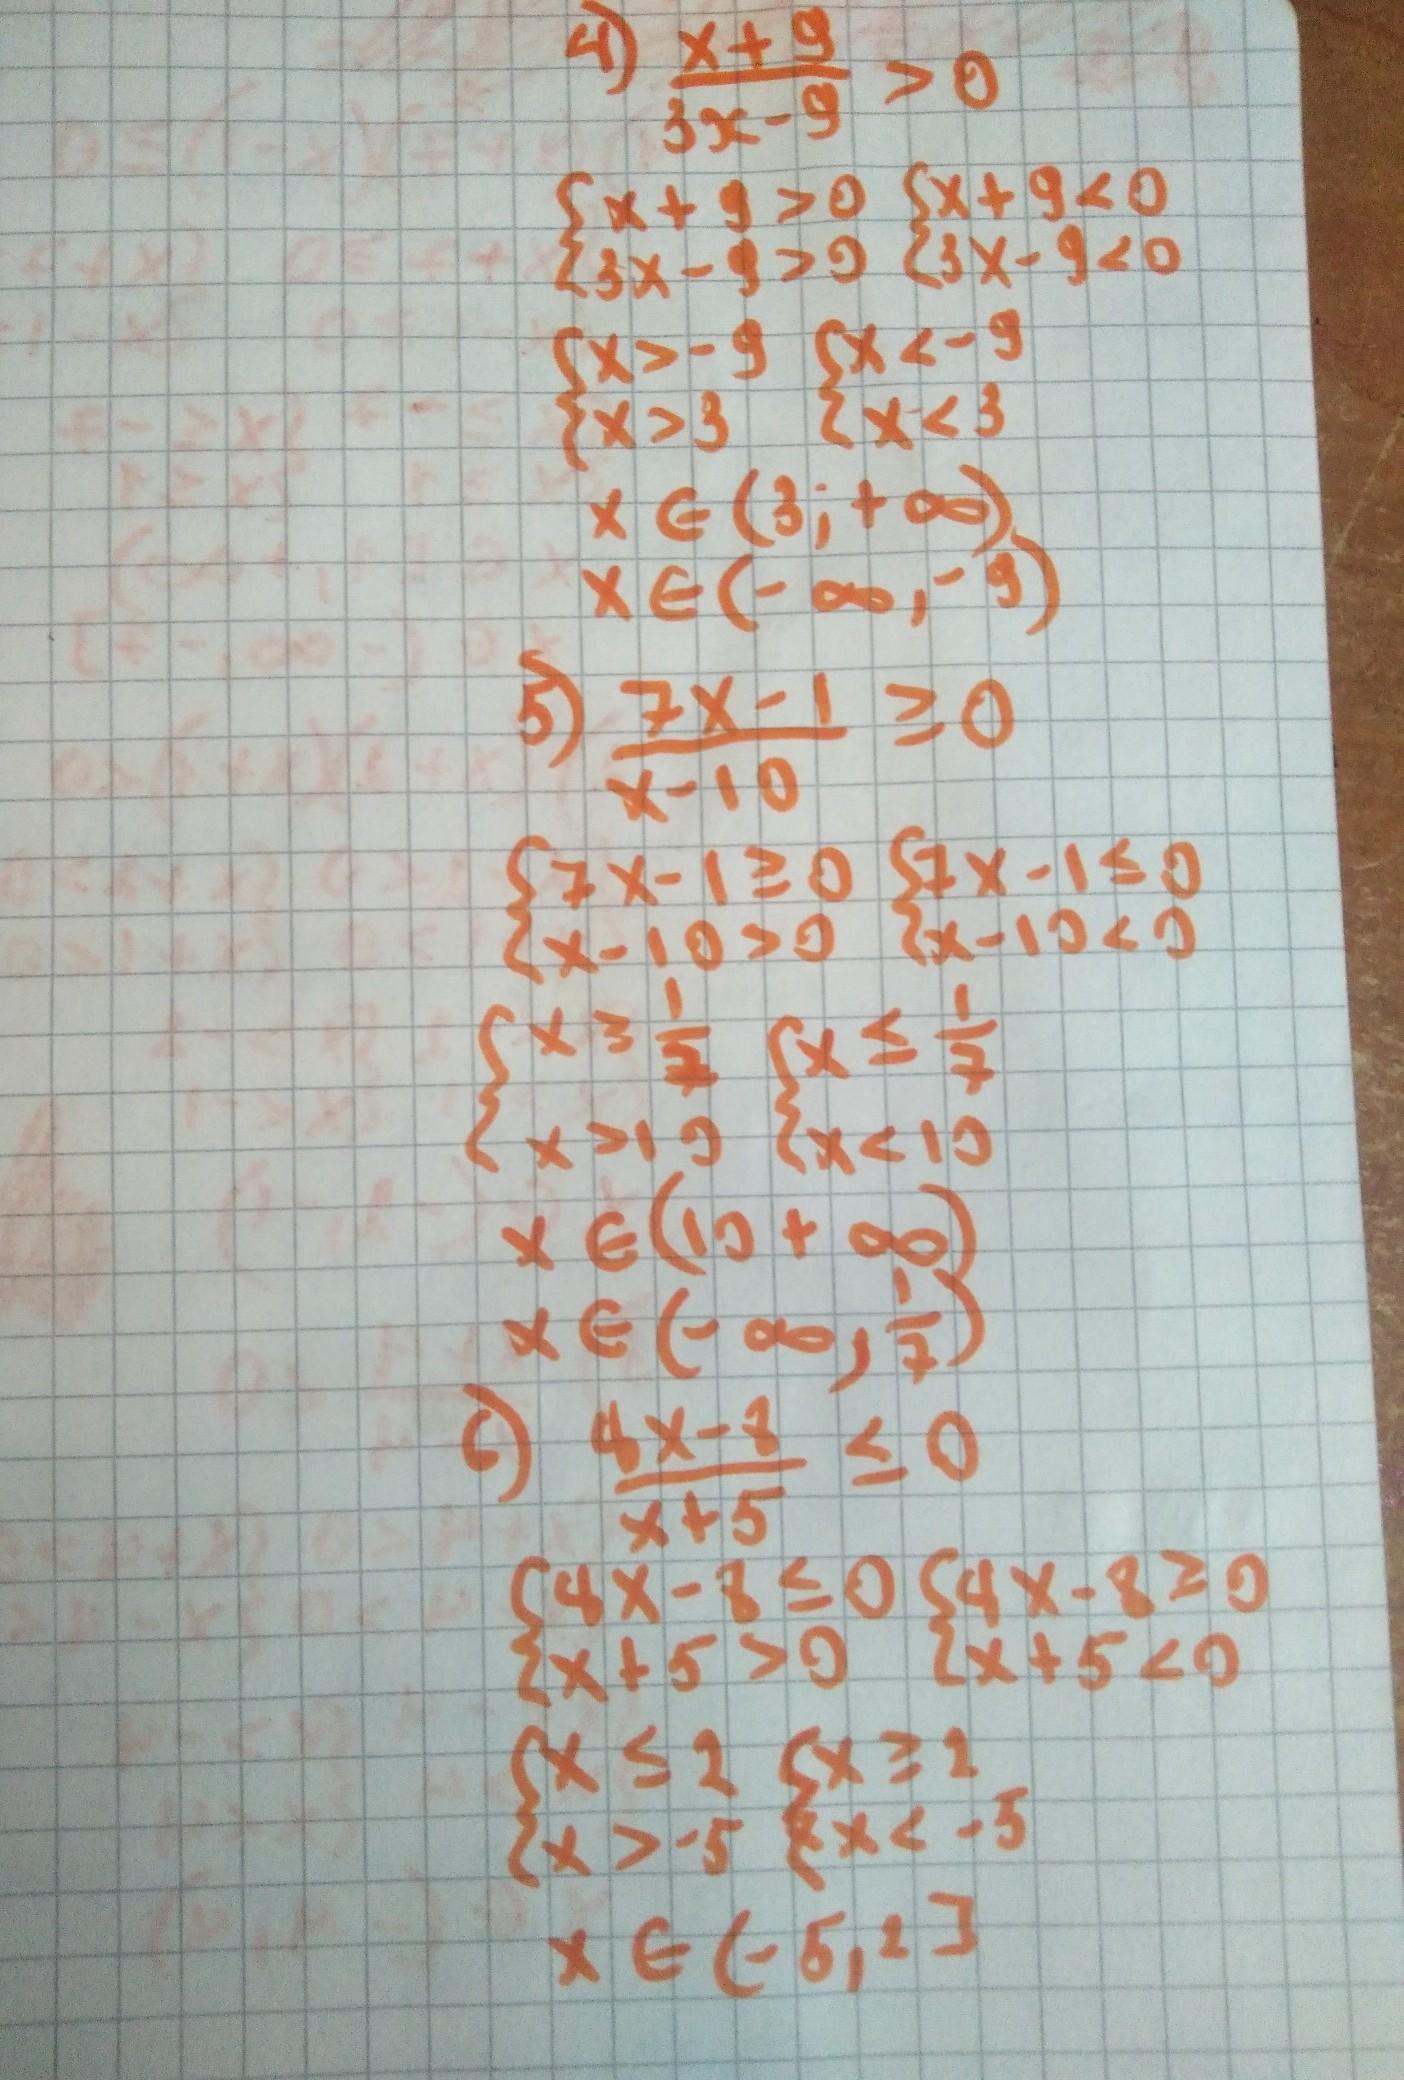 4) x+9
3x-9 > 0
{x+9>0 {x+9<0
{3x-9>0 {3x-9<0
{x>-9 {x<-9
{x>3 {x<3
x∈(3;+∞)
x∈(-∞,-9)
5) 7x-1
x-10 ≥0
{7x-1≥0 {7x-1≤0
{x-10>0 {x-10<0
{x≥1/7 {x≤1/7
{x>10 {x<10
x∈(10+∞)
x∈(-∞,1/7)
6) 4x-8
x+5 ≤0
{4x-8≤0 {4x-8≥0
{x+5>0 {x+5<0
{x≤2 {x≥2
{x>-5 {x<-5
x∈(-5,2]